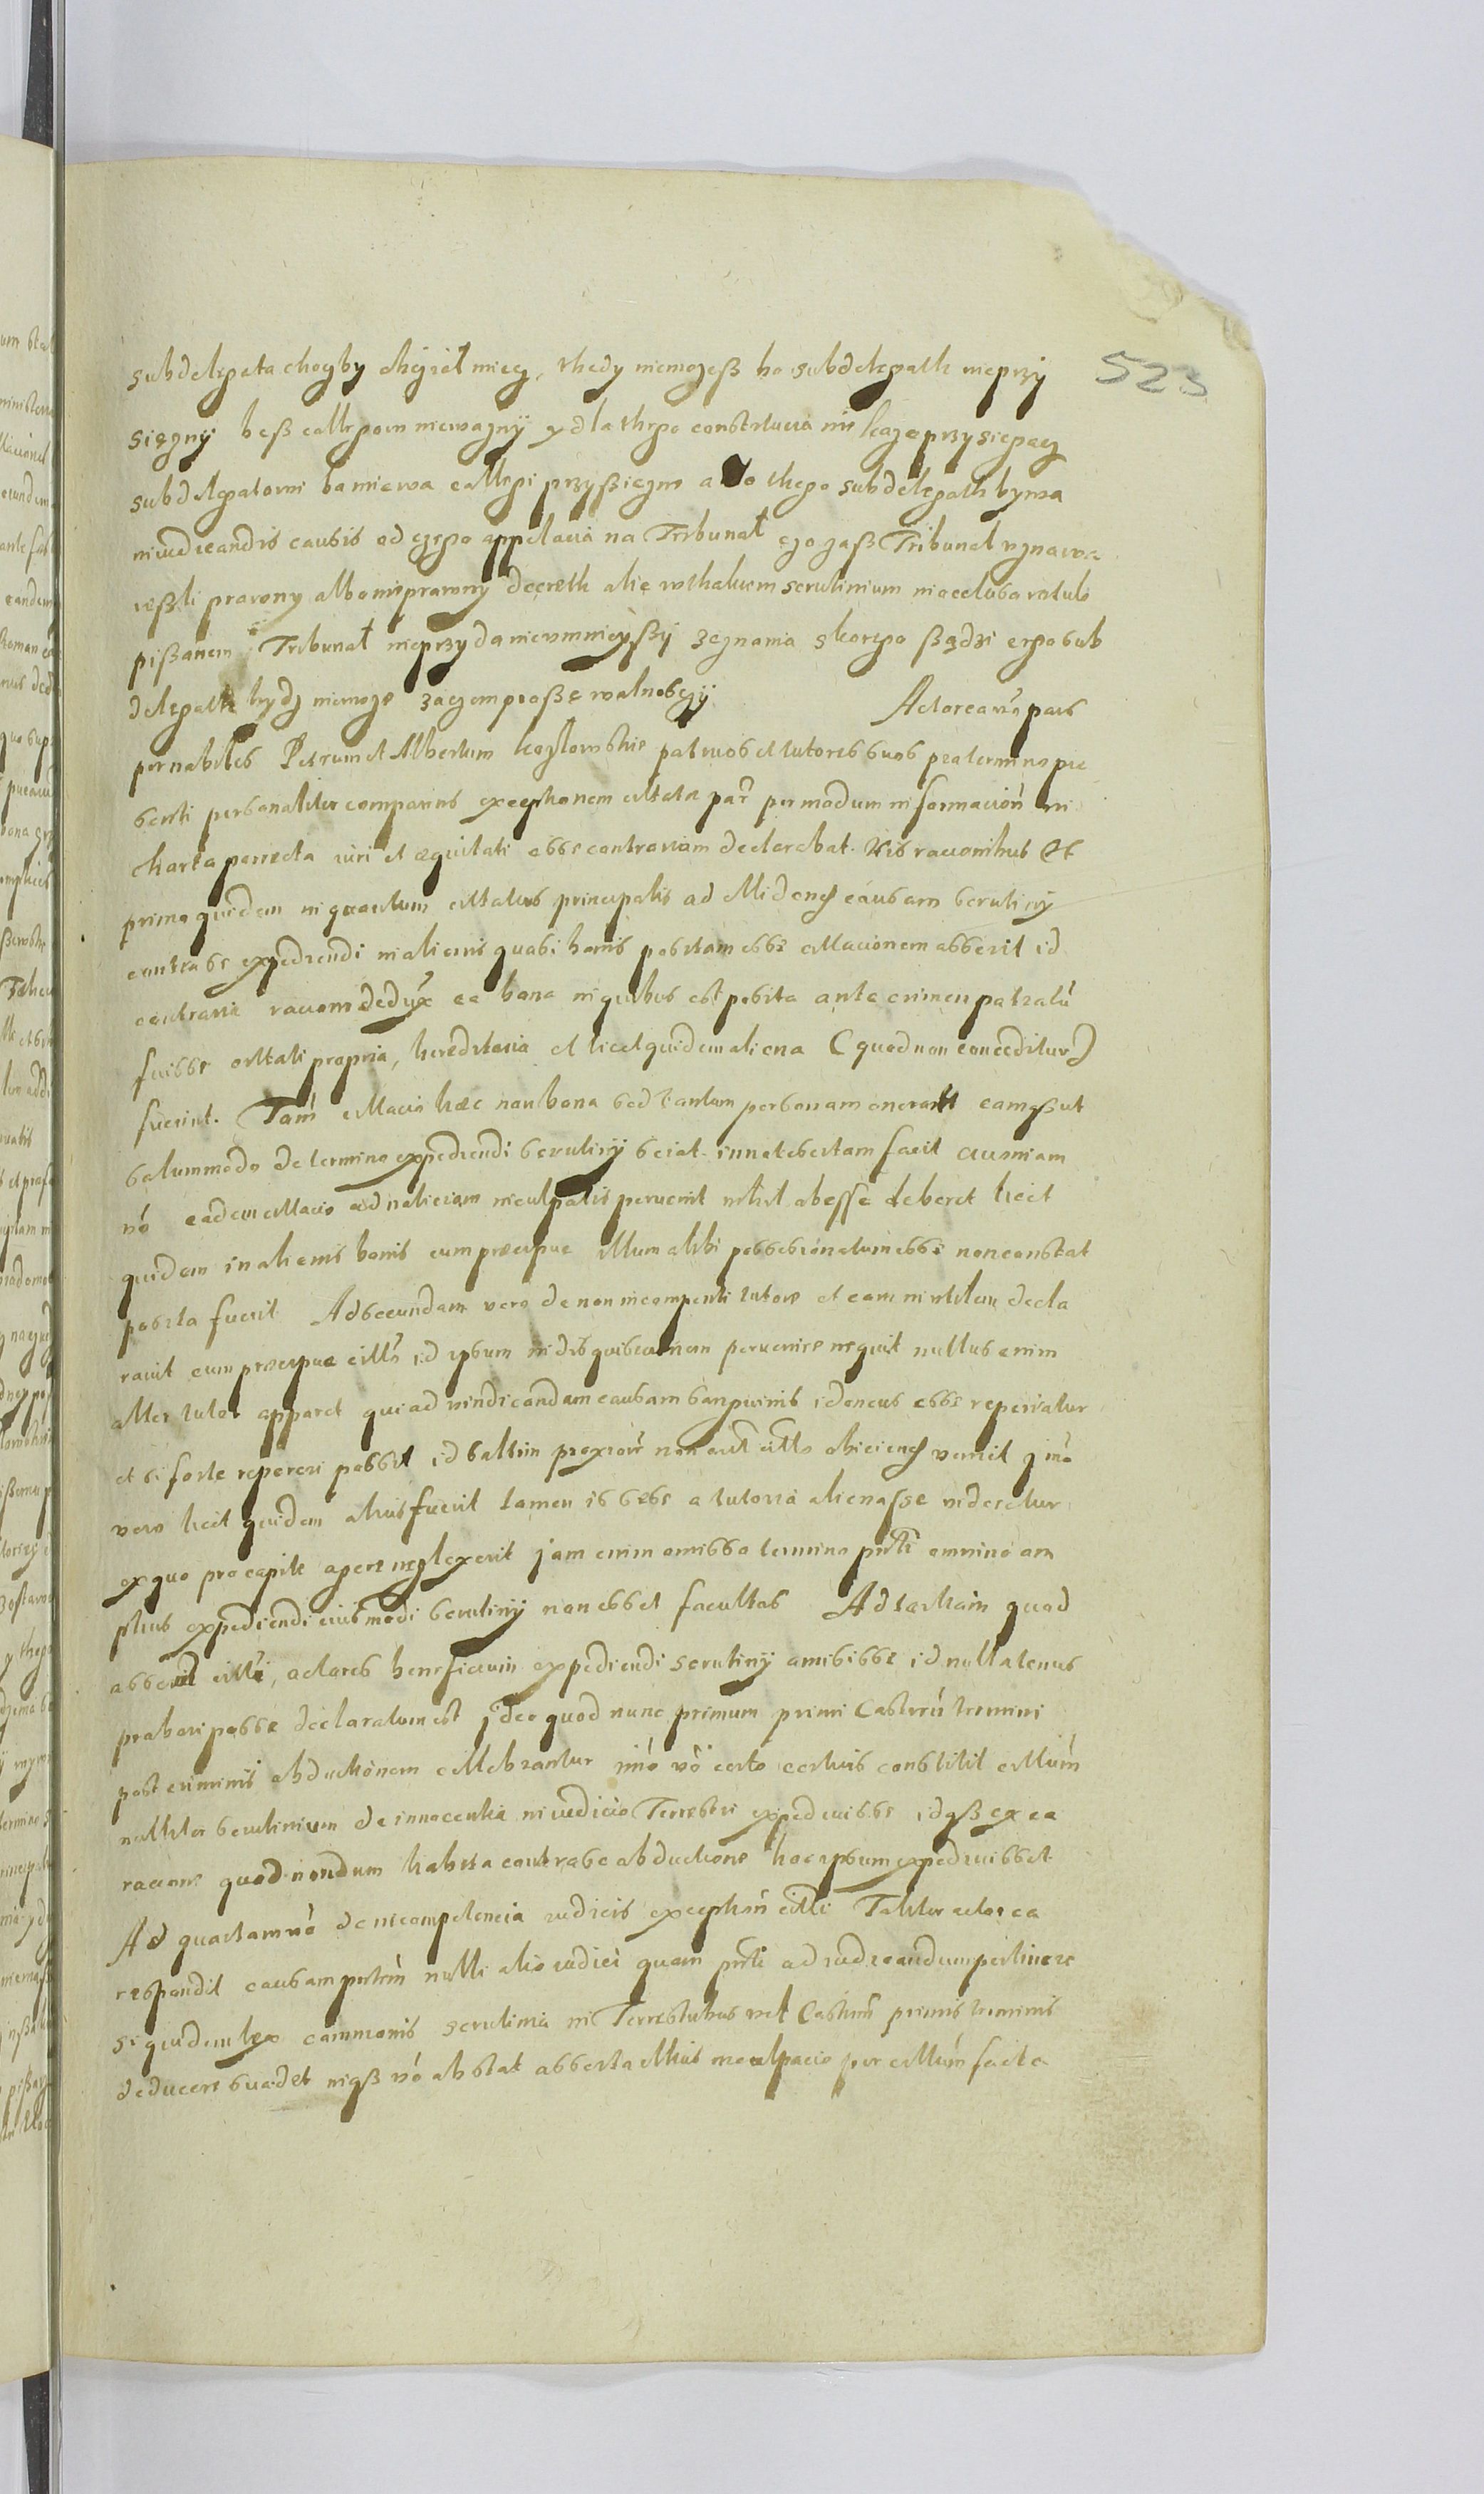 523
subdelegata chogby chczial miecz, thedy niemozeß bo subdelegath nieprzy
sięgnÿ beß collegow niewaznÿ y dla thego constitucia nie kaze przysiegacz
subdelegatowi ba miewa collegi przyßiegm a do thego subdelegath bywa
in iudicandis causis od czego appellacia na Tribunał czo zaß Tribunal uznawa
ießli prawny albo nieprawny decreth alie w thakiem scrutinium
pißanem Tribunał nieprzyda niewinnieyßÿ zeznania skorego ßądzi ergo sub
delegath bydz niemoze zaczem proße wolnosczÿ Actorea vero pars
per nobiles Petrum et Albertum kozłowskie patruos et tutores suos pro termino pre
senti personaliter comparens exceptionem citata par per modum informacion in
charta porrecta iuri et æquitati esse contrariam declarabat. His racionibus Et
primo quidem in quantum citatus principalis ad videndum causam scrutiny
contra se expediendi in alienis quasi bonis positam esse citacionem asserit id
contraria racione dedux ea bona in quibus est posita ante crimen patratu
fuisse citati propria, hereditaria et licet quidem aliena (quod non conceditur)
fuerint. Tam citacio hæc non bona sed tantum personam onerat eamqß ut
solummodo de termino expediendi scrutiny sciat. innotebertam facit cuoniam
vo eadem citacio ad noticiam inculpatis pervenit nihil obesse deberet licet
quidem in alienis bonis cum præcipue illum alibi possesionatum esse non constat
posita fuerit Ad secundam vero de non incompenti tutore et eam inutilem decla
ravit cum præcipue id ipsum in disquisicionem pervenire nequit nullus enim
alter tutor apparet qui ad vindicandam causam sanguinis idoneus esse reperiatur
et si forte reperiri posset id saltim proxior non aut citto obiiciend venit imo
vero licet quidem alius fuerit tamen is sese a tutoria alienasse videretur
ex quo pro capite agere neglexerit jam enim omisso termino pnti omnino am
plius expediendi eiusmodi scrutiny non esset facultas Ad tertiam quod
asserit citti, actores beneficium expediendi scrutinÿ amisisse id nullatenus
probari posse declaratum est ideo quod nunc primum primi Castren termini
post criminis abductionem cellebrantur imo vo certo certius constitit cittum
nulliter scrutinium de innocentia in iudicio Terrestri expedivisse idqß ex ea
racione quod nondum habita contra se abductione hoc ipsum expedivisset
Ad quartam vo de incompetencia iudicis exception citti Taliter actorea
respondit causam pntem nulli alio iudici quam pnti ad iudicandum pertinere
siquidem lex communis scrutinia in Terrestribus vel Castren primis terminis
deducere suadet niqß vo obstat asserta illius inculpacio per cittum facta